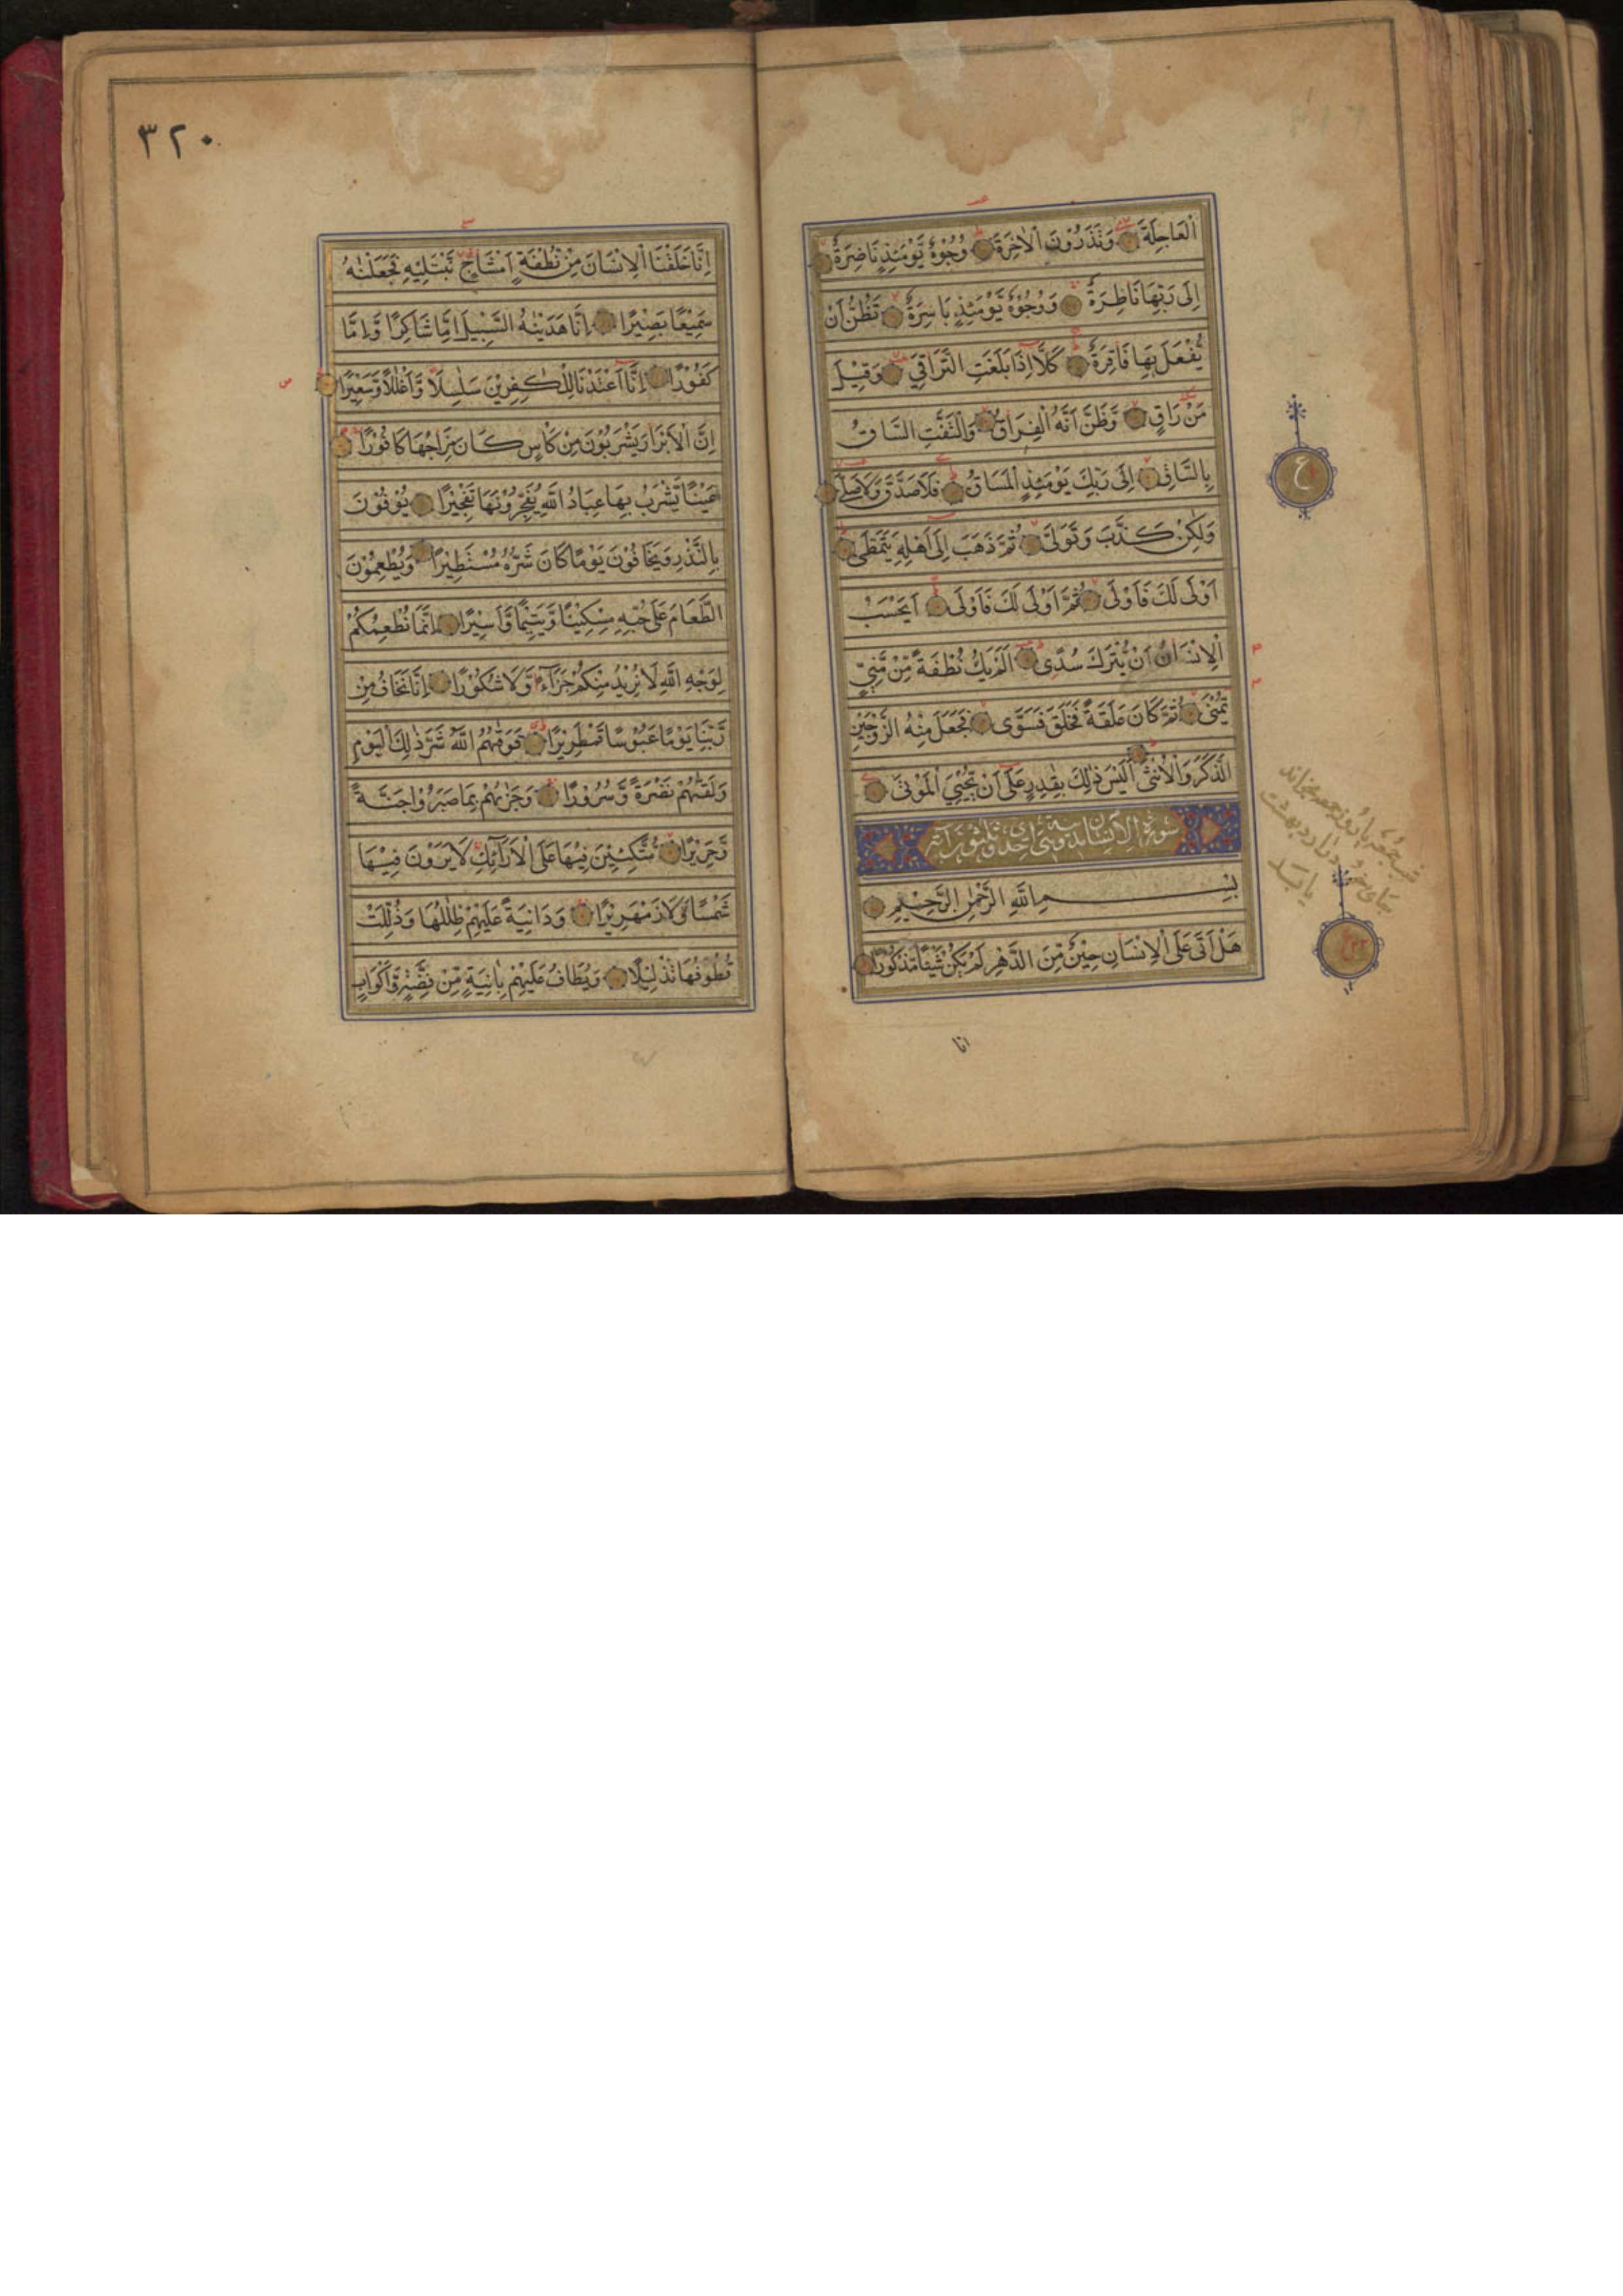 اَلْعَاجِلَةَ وَتَذَرُوْنَ الْاٰخِرَةَ وُجُوْهٌ يَّوْمَئِذٍ نَّاضِرَةٌ
اِلٰى رَبِّهَا نَاظِرَةٌ وَوُجُوْهٌ يَّوْمَئِذٍ بَاسِرَةٌ تَظُنُّ اَنْ
يُّفْعَلَ بِهَا فَاقِرَةٌ كَلَّا اِذَا بَلَغَتِ التَّرَاقِيَ وَقِيْلَ
مَنْ رَاقٍ وَّظَنَّ اَنَّهُ الْفِرَاقُ وَالْتَفَّتِ السَّاقُ
بِالسَّاقِ اِلٰى رَبِّكَ يَوْمَئِذٍ الْمَسَاقُ فَلَا صَدَّقَ وَلَا صَلّٰى
وَلٰكِنْ كَذَّبَ وَتَوَلّٰى ثُمَّ ذَهَبَ اِلٰى اَهْلِهٖ يَتَمَطّٰى
اَوْلٰى لَكَ فَاَوْلٰى ثُمَّ اَوْلٰى لَكَ فَاَوْلٰى اَيَحْسَبُ
الْاِنْسَانُ اَنْ يُّتْرَكَ سُدًى اَلَمْ يَكُ نُطْفَةً مِّنْ مَّنِيٍّ
يُّمْنٰى ثُمَّ كَانَ عَلَقَةً فَخَلَقَ فَسَوّٰى فَجَعَلَ مِنْهُ الزَّوْجَيْنِ
الذَّكَرَ وَالْاُنْثٰى اَلَيْسَ ذٰلِكَ بِقٰدِرٍ عَلٰى اَنْ يُّحْيِيَ الْمَوْتٰى
سورة الانسان مدنية وهي احدى وثلثون آية
بِسْمِ اللّٰهِ الرَّحْمٰنِ الرَّحِيْمِ
هَلْ اَتٰى عَلَى الْاِنْسَانِ حِيْنٌ مِّنَ الدَّهْرِ لَمْ يَكُنْ شَيْئًا مَّذْكُوْرًا
انا
ع
٣٢٠
اِنَّا خَلَقْنَا الْاِنْسَانَ مِنْ نُّطْفَةٍ اَمْشَاجٍ نَّبْتَلِيْهِ فَجَعَلْنٰهُ
سَمِيْعًا بَصِيْرًا اِنَّا هَدَيْنٰهُ السَّبِيْلَ اِمَّا شَاكِرًا وَّاِمَّا
كَفُوْرًا اِنَّا اَعْتَدْنَا لِلْكٰفِرِيْنَ سَلٰسِلَا۟ وَاَغْلٰلًا وَّسَعِيْرًا
اِنَّ الْاَبْرَارَ يَشْرَبُوْنَ مِنْ كَاْسٍ كَانَ مِزَاجُهَا كَافُوْرًا
عَيْنًا يَّشْرَبُ بِهَا عِبَادُ اللّٰهِ يُفَجِّرُوْنَهَا تَفْجِيْرًا يُوْفُوْنَ
بِالنَّذْرِ وَيَخَافُوْنَ يَوْمًا كَانَ شَرُّهٗ مُسْتَطِيْرًا وَيُطْعِمُوْنَ
الطَّعَامَ عَلٰى حُبِّهٖ مِسْكِيْنًا وَّيَتِيْمًا وَّاَسِيْرًا اِنَّمَا نُطْعِمُكُمْ
لِوَجْهِ اللّٰهِ لَا نُرِيْدُ مِنْكُمْ جَزَآءً وَّلَا شُكُوْرًا اِنَّا نَخَافُ مِنْ
رَّبِّنَا يَوْمًا عَبُوْسًا قَمْطَرِيْرًا فَوَقٰهُمُ اللّٰهُ شَرَّ ذٰلِكَ الْيَوْمِ
وَلَقّٰهُمْ نَضْرَةً وَّسُرُوْرًا وَجَزٰىهُمْ بِمَا صَبَرُوْا جَنَّةً
وَّحَرِيْرًا مُّتَّكِئِيْنَ فِيْهَا عَلَى الْاَرَآئِكِ لَا يَرَوْنَ فِيْهَا
شَمْسًا وَّلَا زَمْهَرِيْرًا وَدَانِيَةً عَلَيْهِمْ ظِلٰلُهَا وَذُلِّلَتْ
قُطُوْفُهَا تَذْلِيْلًا وَيُطَافُ عَلَيْهِمْ بِاٰنِيَةٍ مِّنْ فِضَّةٍ وَّاَكْوَابٍ